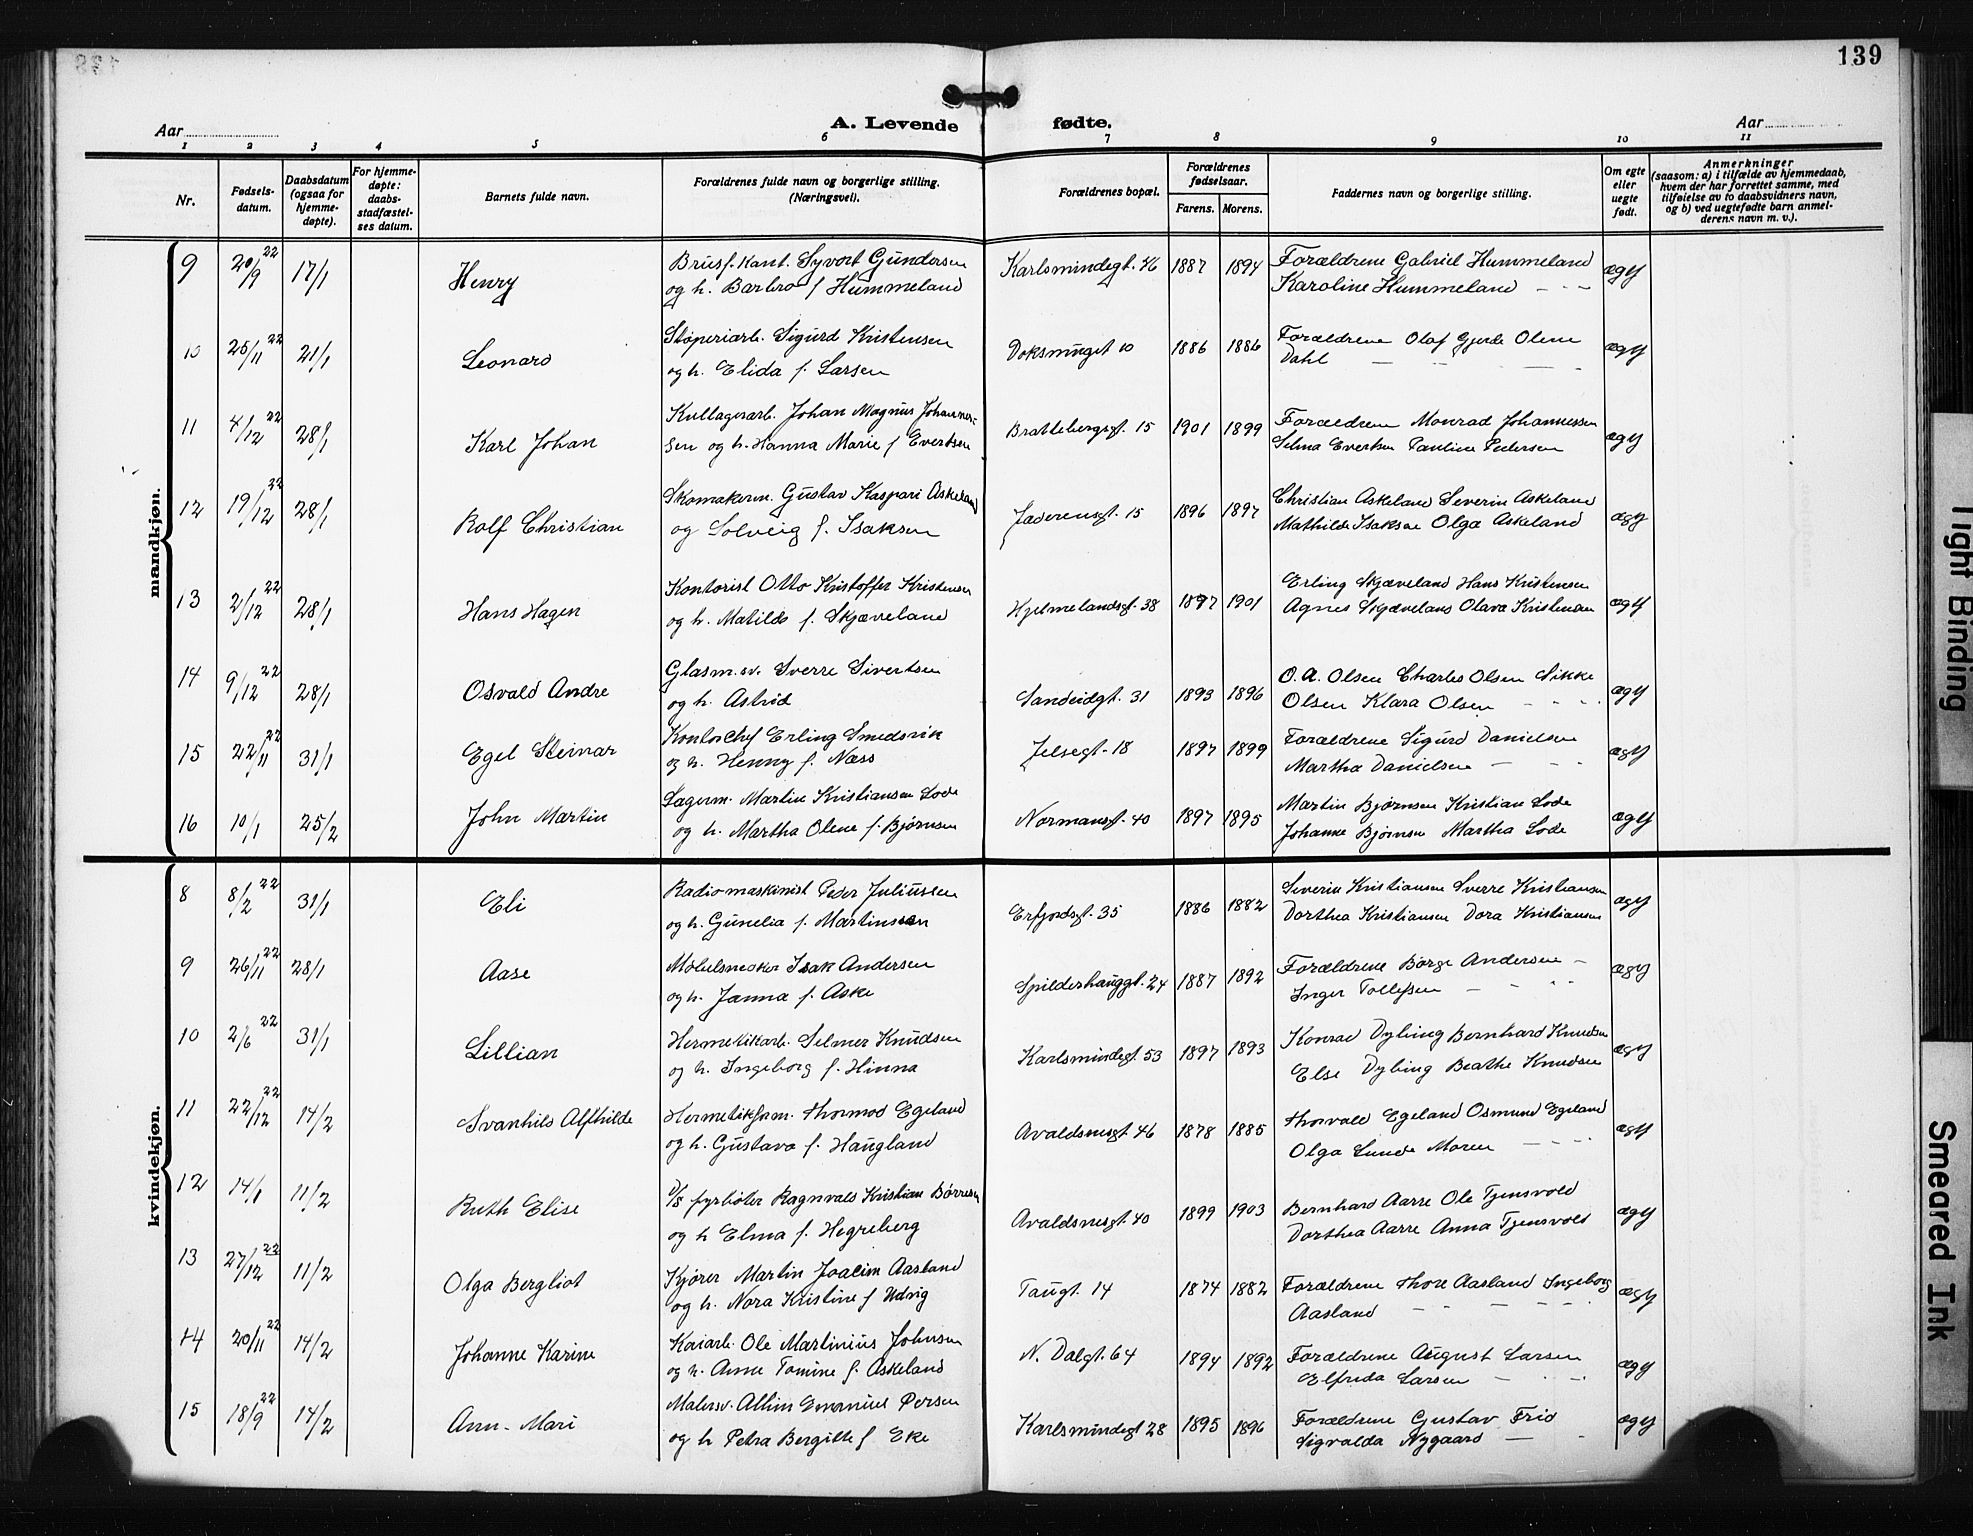 139
Aar
A. Levende fødte.
Aar
1 2 3 4 5 6 7 8 9 10 11
Nr.
Fødsels-
datum.
Daabsdatum
(ogsaa for
hjemme-
døpte).
For hjemme-
døpte:
daabs-
stadfæstel-
ses datum.
Barnets fulde navn.
Forældrenes fulde navn og borgerlige stilling.
(Næringsvei).
Forældrenes bopæl.
Forældrenes
fødselsaar.
Farens. Morens.
Faddernes navn og borgerlige stilling.
Om egte
eller
uegte
født.
Anmerkninger
(saasom: a) i tilfælde av hjemmedaab,
hvem der har forrettet samme, med
tilføielse av to daabsvidners navn,
og b) ved uegtefødte barn anmel-
derens navn m. v.).
mandkjøn.
9 20/9 22 17/1 Henry Brusf. kant. Syvert Gundersen Karlsmindegt. 46 1887 1894 Forældrene Gabriel Hummeland ægt
og h. Barbro f Hummeland Karoline Hummeland
10 25/11 22 21/1 Leonard Støperiarb. Sigurd Kristensen Doksmuget 10 1886 1886 Forældrene Olaf Gjerde Olene ægt
og h. Elida f. Larsen Dahl
11 4/12 22 28/1 Karl Johan Kullagerarb. Johan Magnus Johannes- Brattebergsgt. 15 1901 1899 Forældrene Monrad Johannessen ægt
sen og h. Hanna Marie f Evertsen Selma Evertsen Pauline Pedersen
12 19/12 22 28/1 Rolf Christian Skomakerm. Gustav Kaspari Askeland Jæderensgt. 15 1896 1897 Christian Askeland Severin Askeland ægt
og Solveig f. Isaksen Mathilde Isaksen Olga Askeland
13 2/12 22 28/1 Hans Hagen Kontorist Otto Kristoffer Kristensen Hjelmelandsgt. 38 1897 1901 Erling Skjæveland Hans Kristensen ægt
og h. Matilde f. Skjæveland Agnes Skjæveland Olava Kristensen
14 9/12 22 28/1 Osvald Andre Glasm.sv. Sverre Sivertsen Sandeidgt. 31 1893 1896 O. A. Olsen Charles Olsen Sikke ægt
og h. Astrid Olsen Klara Olsen
15 22/11 22 31/1 Egel Steinar Kontorchef Erling Smedsvik Jelsegt. 18 1897 1899 Forældrene Sigurd Danielsen ægt
og h. Henny f. Næss Martha Danielsen
16 10/1 25/2 John Martin Lagerm. Martin Kristiansen Lode Normansgt. 40 1897 1895 Martin Bjørnsen Kristian Lode ægt
og h. Martha Olene f. Bjørnsen Johanne Bjørnsen Martha Lode
kvindekjøn.
8 8/2 22 31/1 Eli Radiomaskinist Peder Juliussen Erfjordsgt. 35 1886 1882 Severin Kristiansen Sverre Kristiansen ægt
og h. Gunelia f. Martinsen Dorthea Kristiansen Dora Kristiansen
9 26/11 22 28/1 Aase Møbelsnedker Isak Andersen Spilderhauggt. 24 1887 1892 Forældrene Børge Andersen ægt
og h. Janna f. Aske Inger Tollefsen
10 2/6 22 31/1 Lillian Hermetikarb. Selmer Knudsen Karlsmindegt. 53 1897 1893 Konrad Dybing Bernhard Knudsen ægt
og h. Ingeborg f. Hinna Else Dybing Beathe Knudsen
11 22/12 22 14/2 Svanhild Alfhilde Hermetikform. Thormod Egeland Avaldsnesgt. 46 1878 1885 Thorvald Egeland Osmund Egeland ægt
og h. Gustava f. Haugland Olga Lunde Moren
12 14/1 11/2 Ruth Elise D/s fyrbøter Ragnvald Kristian Børresen Avaldsnesgt. 40 1899 1903 Bernhard Aarre Ole Tjensvold ægt
og h Elma f. Hegreberg Dorthea Aarre Anna Tjensvold
13 27/12 22 11/2 Olga Bergliot Kjører Martin Joacim Aasland Taugt. 14 1874 1882 Forældrene Thore Aasland Ingeborg ægt
og h. Nora Kristine f Udvig Aasland
14 20/11 22 14/2 Johanne Karine Kaiarb. Ole Martinius Johnsen N. Dalgt. 64 1894 1892 Forældrene August Larsen ægt
og h. Anne Tomine f. Askeland Elfrida Larsen
15 18/9 22 14/2 Ann-Mari Malersv. Emanius Persen Karlsmindegt 28 1895 1896 Forældrene Gustav Frid ægt
og h Petra Bergitte f Eke Sigvalda Nygaard
Tight Binding
Smeared Ink